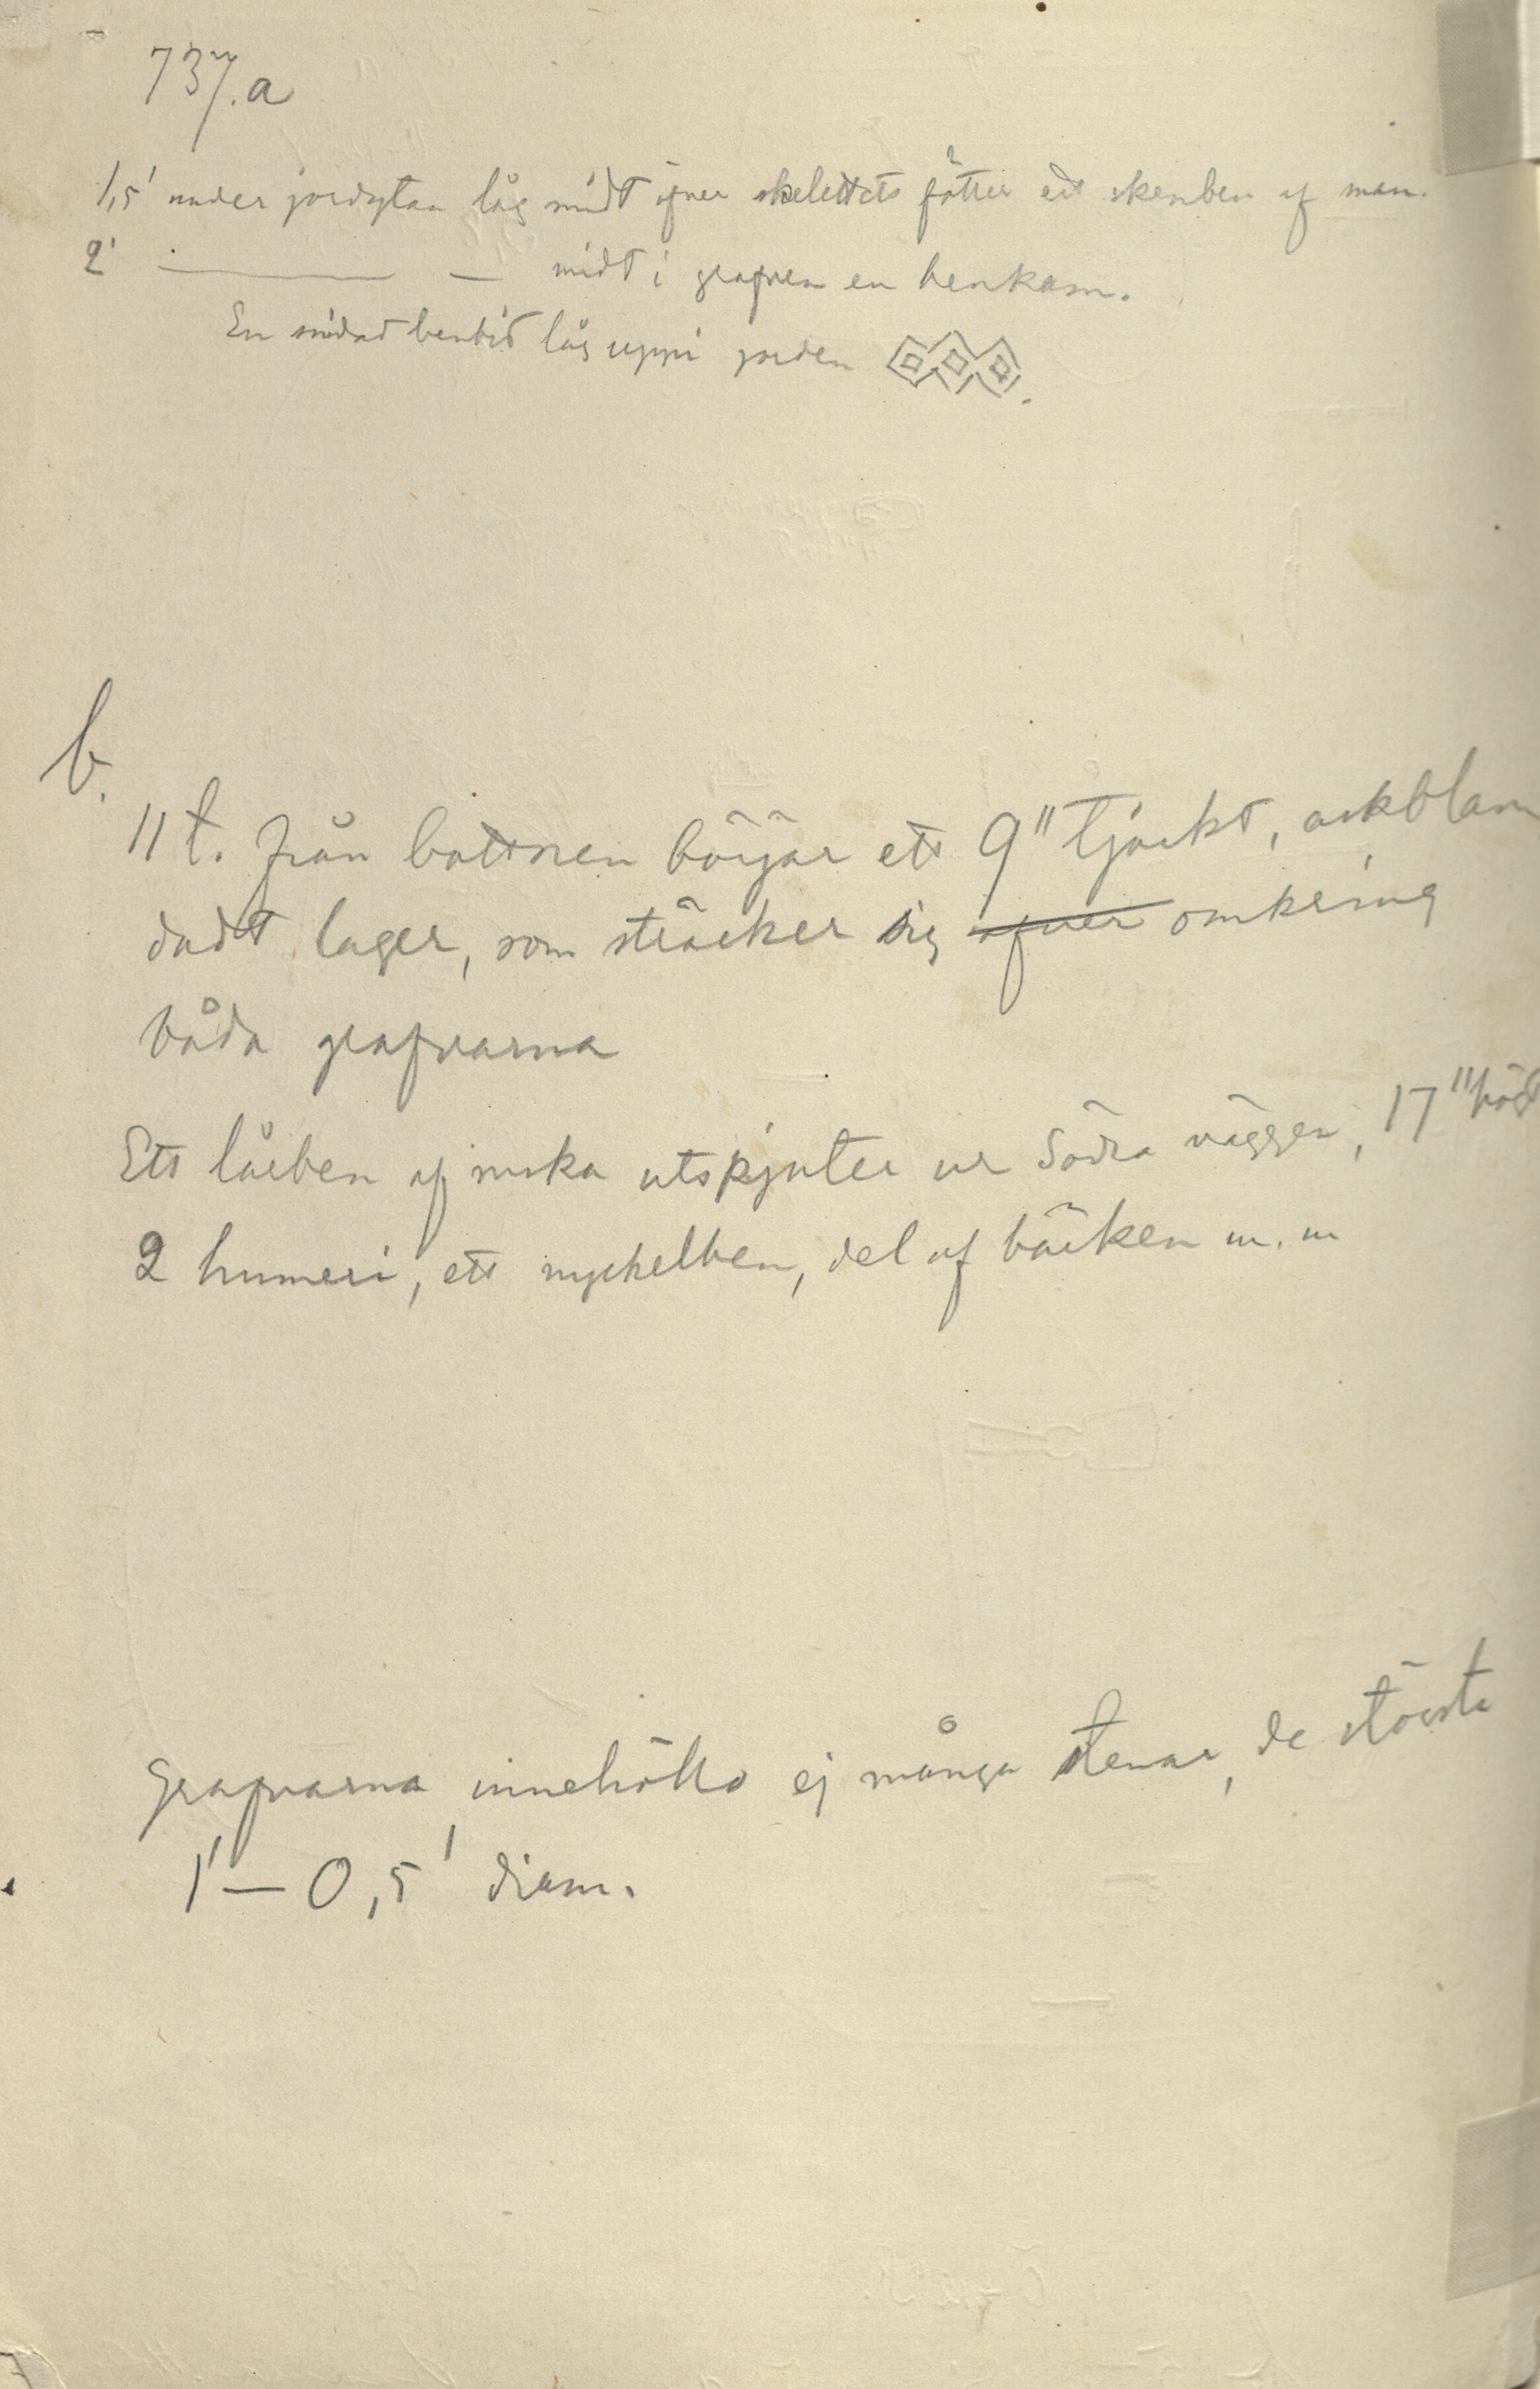 737.a
1,5' under jordytan låg midt öfver skelettets fötter ett skenben af män.
2' — — midt i grafven en benkam.
En sirad benbit låg uppi jorden
b.
11 t. från bottnen börjar ett 9" tjockt, askblan
dadt lager, som sträcker sig öfver omkring
båda grafvarna
Ett lårben af mska utskjuter ur Södra väggen, 17" högt
2 humeri, ett nyckelben, del af bäcken m. m
Grafvarna innehöllo ej många stenar, de största
1' — 0,5' diam.